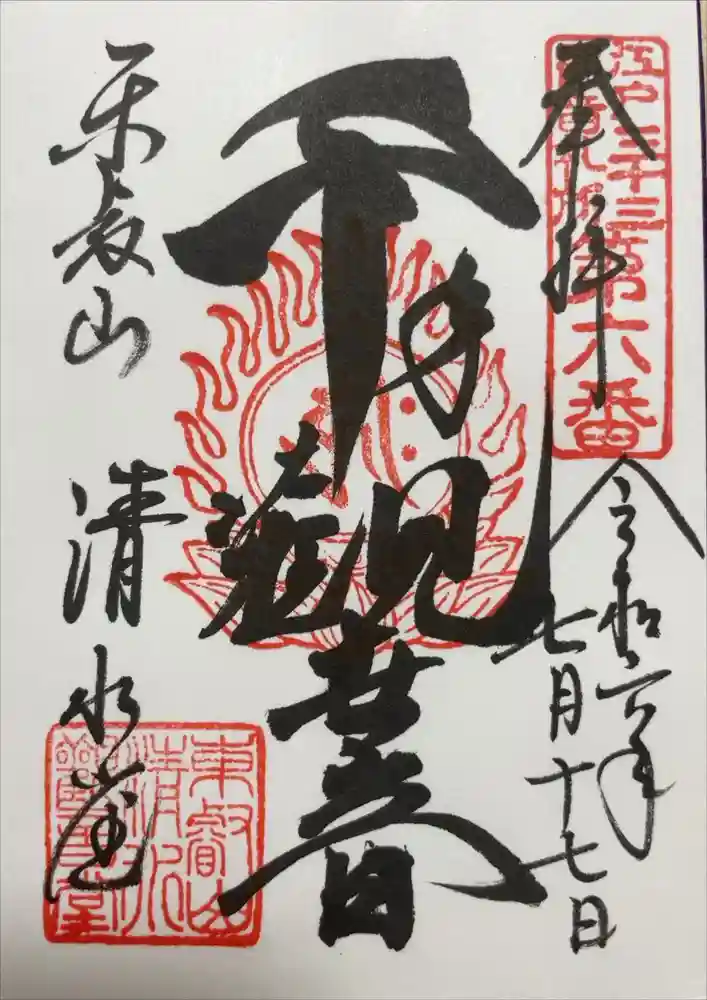 江戸三十三
観音札所
第六番
奉拝
令和六年
七月十七日
千手観世音
東叡山 清水堂
東叡山
清水
觀音堂